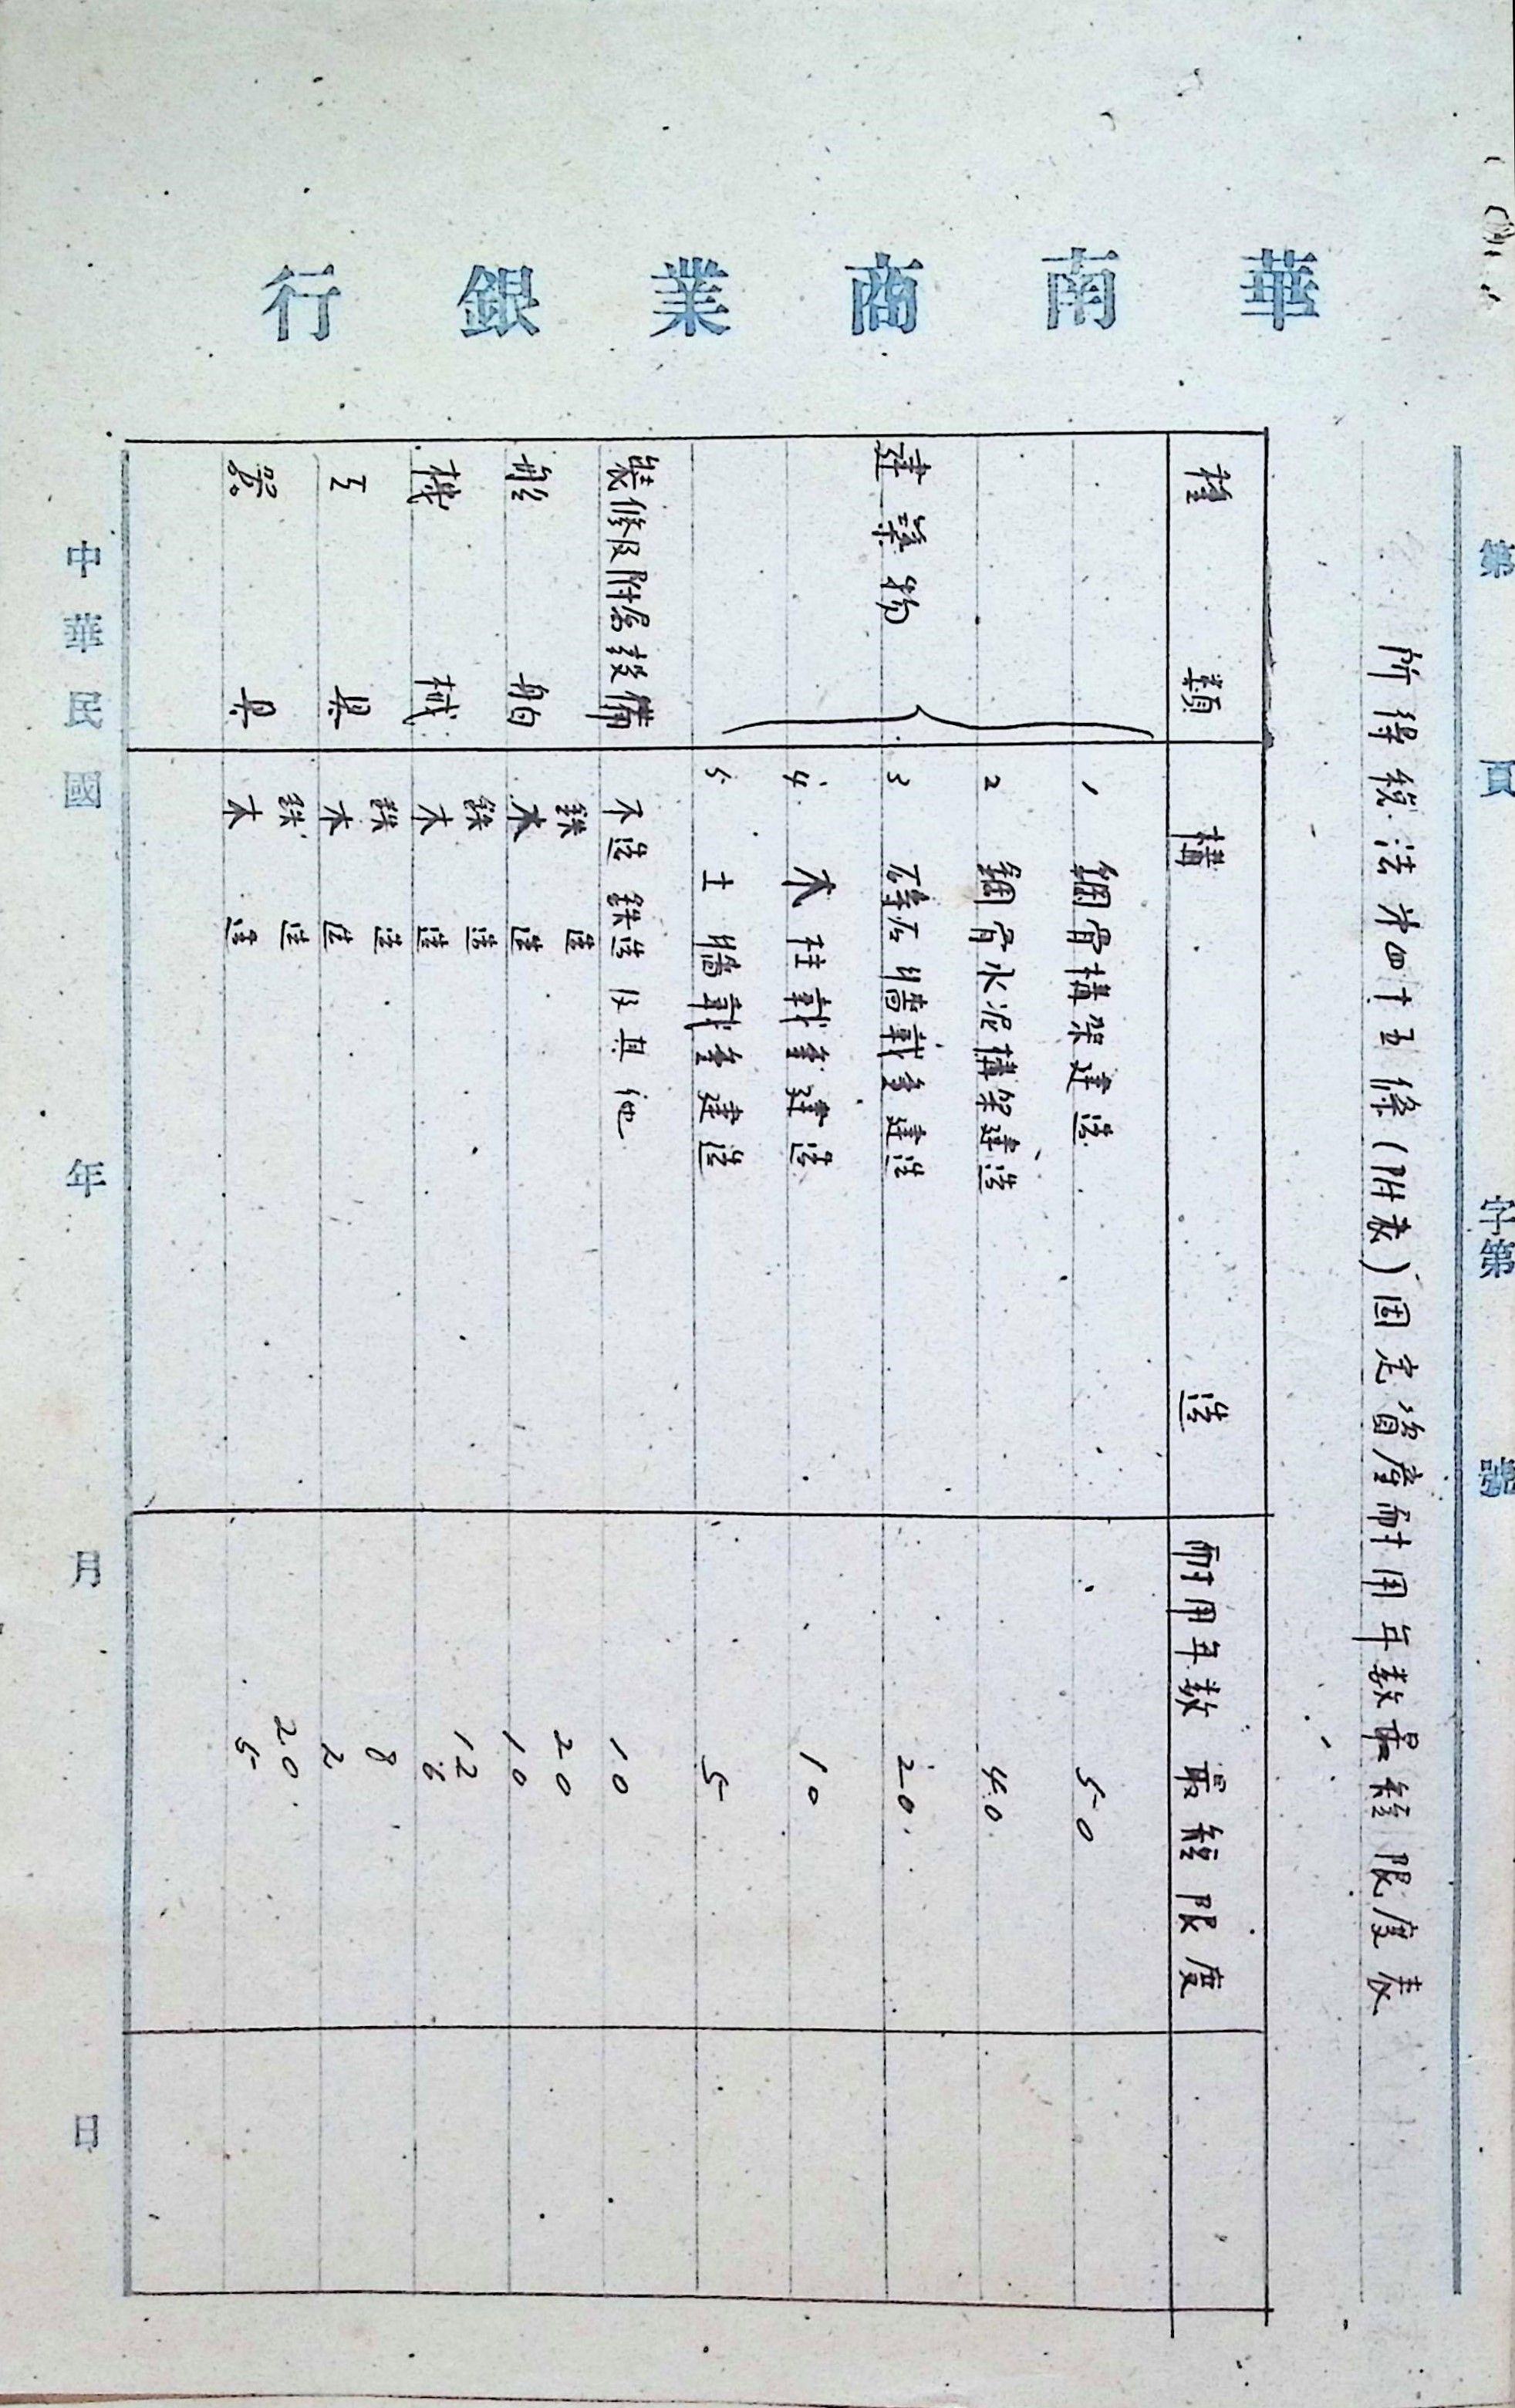 華南商業銀行
第 頁 字第 號
所得稅法第四十五條(附表)固定資產耐用年数最短限度表
種類 構造 耐用年数最短限度
建築物 1 鋼骨構架建造 50
2 鋼骨水泥構架建造 40
3 磚石牆載重建造 20
4 木柱載重建造 10
5 土牆載重建造 5
裝修及附属設備 木造鉄造及其他 10
船舶 鉄造 20
木造 10
機械 鉄造 12
木造 6
工具 鉄造 8
木造 2
器具 鉄造 20
木造 5
中華民國 年 月 日